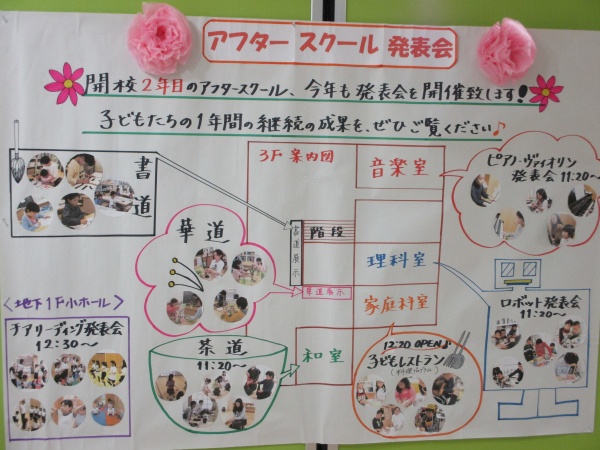 アフター スクール 発表会
開校2年目のアフタースクール、今年も発表会を開催致します!
子どもたちの1年間の継続の成果を、ぜひご覧ください♪
3F 案内図
音楽室
ピアノ・ヴァイオリン
発表会 11:20〜
書道
華道
書道展示
階段
華道展示
理科室
家庭科室
ロボット発表会
11:20〜
<地下1F小ホール>
チアリーディング発表会
12:30〜
茶道
11:20〜
和室
12:20 OPEN♪
子どもレストラン